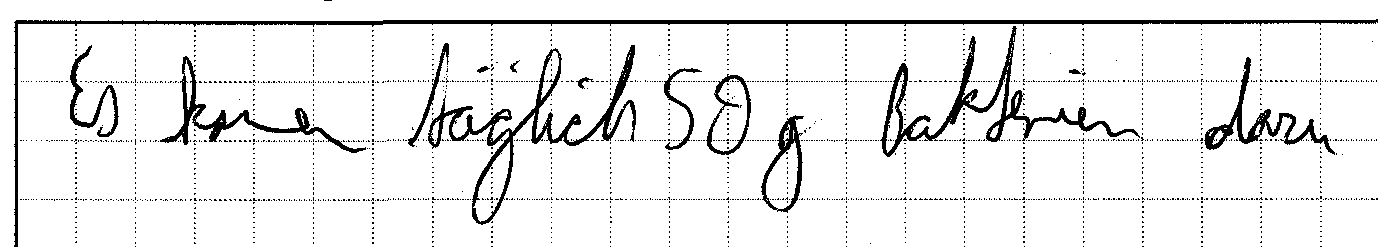 Es kommen täglich 50 g Bakterien dazu